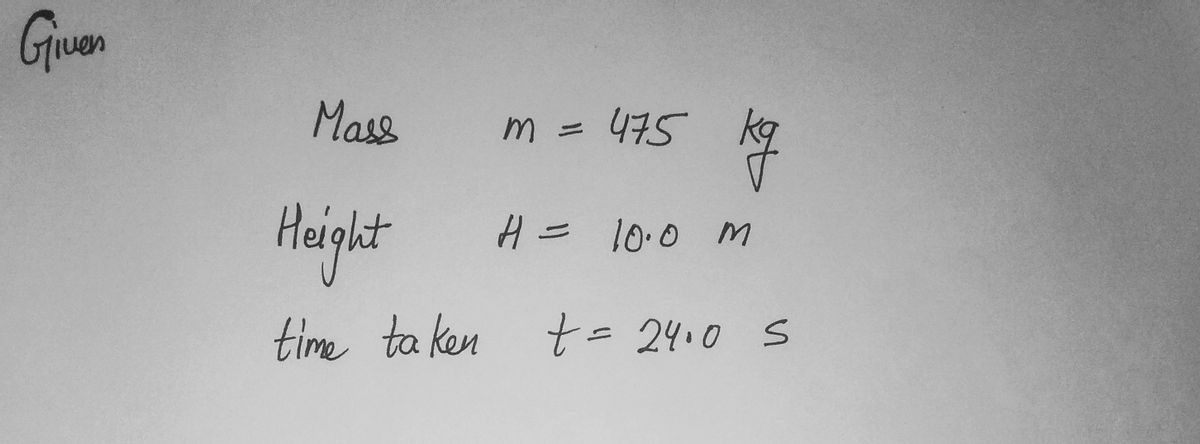 Given
Mass m = 475 kg
Height H = 10.0 m
time taken t = 24.0 s